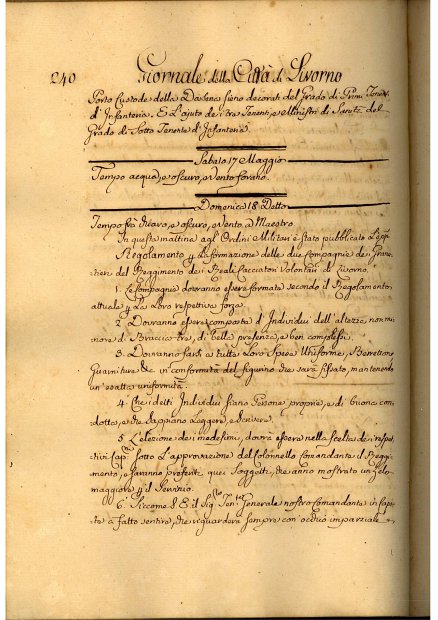 240 Giornale della Città di Livorno
Porto Custode della Darsena sieno decorati del Grado di Primi Tenen.
d'Infanteria. E l'ajuto dei tre Tenenti, e Ministri di Sanità del
Grado di Sotto Tenente d'Infanteria.
Sabato 17 Maggio
Tempo acqua, e oscuro, e Vento forano.
Domenica 18 Detto
Tempo frà chiaro, e oscuro, e Vento a Maestro.
In questa mattina agl'Ordini Militari è stato pubblicato
Regolamento p la formazione delle due Compagnie dei Grana-
tieri del Reggimento dei Reali Cacciatori Volontari di Livorno.
1. Le Compagnie dovranno essere formate secondo il Regolamento
attuale p La Loro respettiva forza.
2. Dovranno essere composte d'Individui dell'altezza, non mi
nore di Braccia tre, di bella presenza, e ben complessi.
3. Dovranno farsi a tutta Loro Spesa Uniforme, Berrettone
Guarniture &c. in conformità del figurino che sarà fissato, mantenendo
un'esatta uniformità.
4. Che i detti Individui siano Persone proprie, e di buona con-
dotta, e che sappiano Leggere, e scrivere.
5. L'elezione dei medesimi, dovrà essere nella scelta dei respe-
tivi Cap.ni sotto L'approvazione del Colonnello Comandante il Reggi-
mento, e saranno preferiti quei Soggetti, che anno mostrato un zelo
maggiore p il Servizio.
6. Siccome S. E. il Sig. Ten. Generale nostro Comandante in Capi-
te à fatto sentire, che riguarderà sempre con occhio imparziale